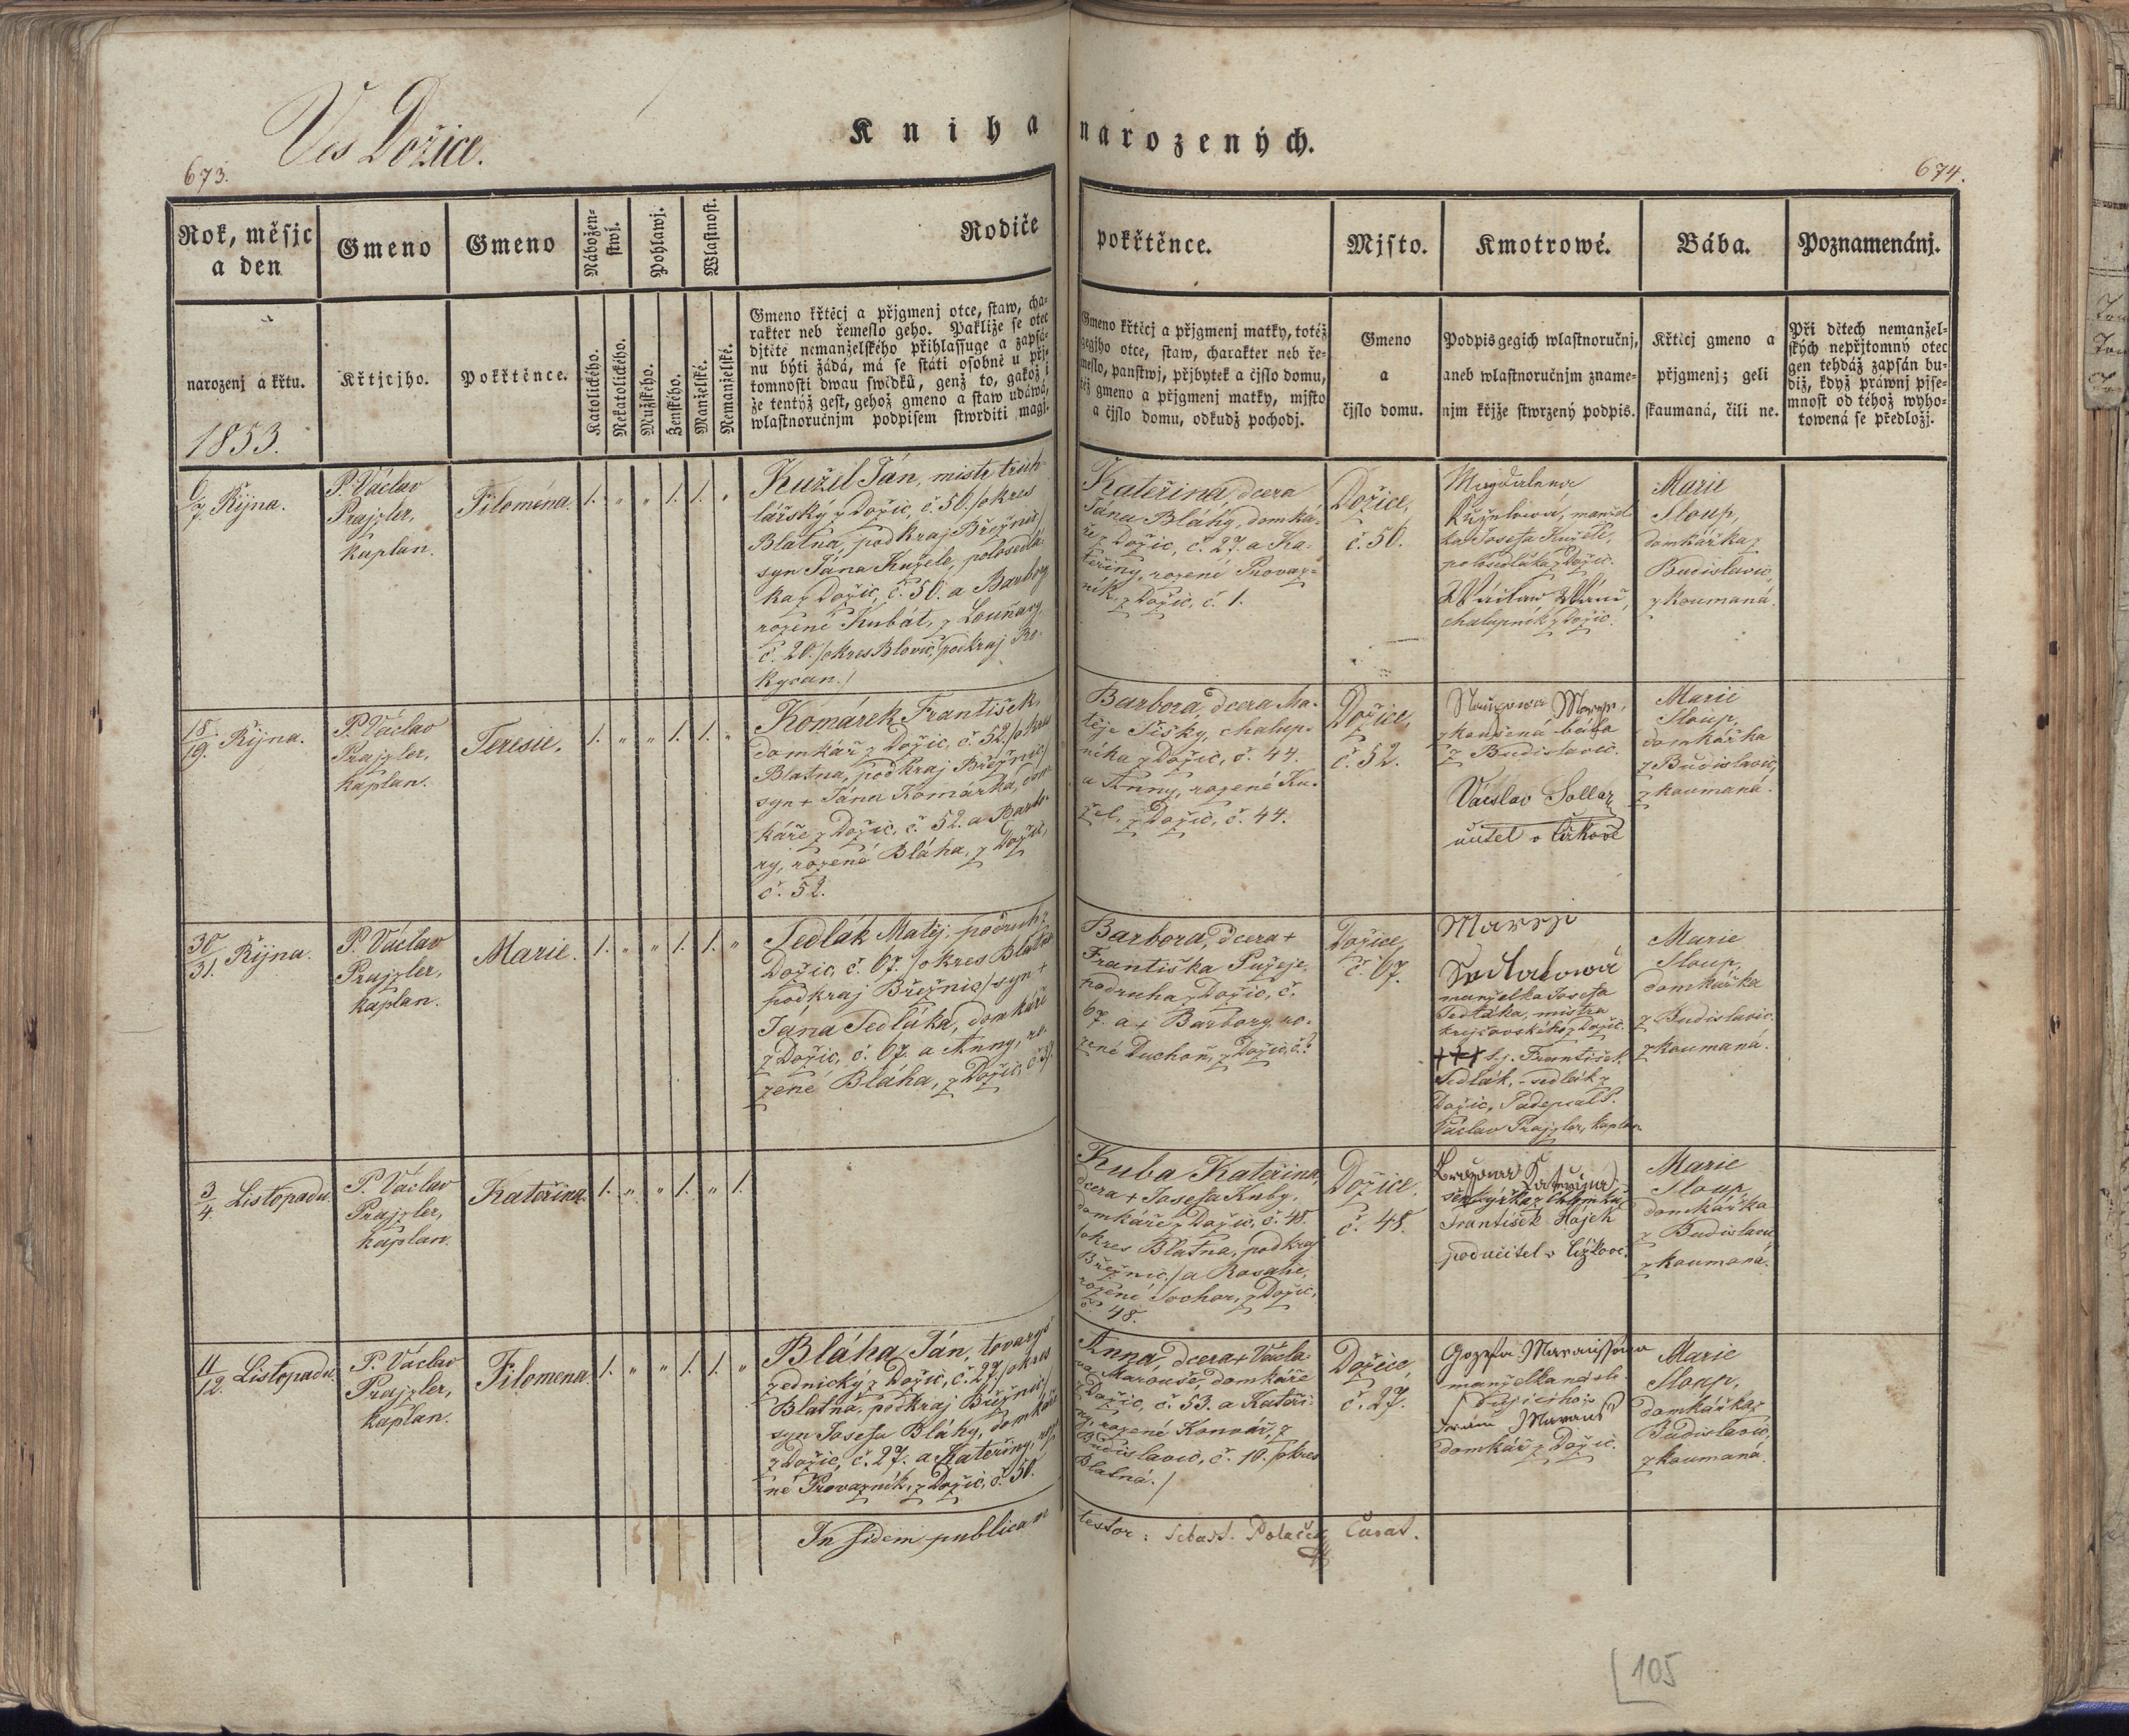 Ves Dožice.
Kniha narozených.
673.
674.
Rok, měsjc
a den
Gmeno
Gmeno
Nábožen-
stwj.
Pohlawj.
Wlastnost.
Rodiče
pokřtěnce.
Mjsto.
Kmotrowé.
Bába.
Poznamenánj.
narozenj a křtu.
1853.
Křtjcjho.
Pokřtěnce.
Katolického.
Nekatolického.
Mužského.
Ženského.
Manželské.
Nemanželské.
Gmeno křtěcj a přjgmenj otce, staw, cha-
rakter neb řemeslo geho. Pakliže se otec
djtěte nemanželského přihlassuge a zapsá-
nu býti žádá, má se státi osobně u přj-
tomnosti dwau swědků, genž to, gakož i
že tentýž gest, gehož gmeno a staw udáwá,
wlastnoručnjm podpisem stwrditi magj.
Gmeno křtěcj a přjgmenj matky, totéž
gegjho otce, staw, charakter neb ře-
meslo, panstwj, přjbytek a čjslo domu,
též gmeno a přjgmenj matky, mjsto
a čjslo domu, odkudž pochodj.
Gmeno
a
čjslo domu.
Podpis gegich wlastnoručnj,
aneb wlastnoručnjm zname-
njm křjže stwrzený podpis.
Křticj gmeno a
přjgmenj; geli
skaumaná, čili ne.
Při dětech nemanžel-
ských nepřjtomný otec
gen tehdáž zapsán bu-
diž, když práwnj pjse-
mnost od téhož wyho-
towená se předložj.
6/7. Října.
P. Václav
Prajzler,
kaplan.
Filoména.
1. „ „ 1. 1. „
Kužel Ján, mistr truh-
lářský z Dožic, č. 50. /okres
Blatná, podkraj Březnic/
syn Jána Kužele, polosedlá-
ka z Dožic, č. 50. a Barbory
rozené Kubát, z Louňavy,
č. 20. /okres Blovic, podkraj Ro-
kycan./
Kateřina, dcera
Jana Bláhy, domká-
ře z Dožic, č. 27. a Ka-
teřiny, rozené Provaz-
ník, z Dožic, č. 1.
Dožice,
č. 50.
Magdalena
Kuželová, manžel-
ka Josefa Kužele,
polosedláka z Dožic.
chalupník z Dožic.
Marie
Sloup,
domkářka z
Budislavic,
zkoumaná.
18./19. Října.
P. Václav
Prajzler,
kaplan.
Teresie.
1. „ „ 1. 1. „
Komárek František,
domkář z Dožic, č. 52. /okres
Blatna, podkraj Březnic/
syn + Jána Komárka, dom-
káře z Dožic, č. 52. a Barbo-
ry, rozené Bláha, z Dožic,
č. 52.
Barbora, dcera Ma-
těje Šišky, chalup-
níka z Dožic, č. 44.
a Anny, rozené Ku-
žel, z Dožic, č. 44.
Dožice,
č. 52.
zkoušená bába
z Budislavic.
Václav Sollar
učitel v Čížkově
Marie
Sloup,
domkářka
z Budislavic,
zkoumaná.
30/31. Října.
P. Václav
Prajzler,
kaplan.
Marie.
1. „ „ 1. 1. „
Sedlák Matěj, podruh z
Dožic, č. 67. /okres Blatná
podkraj Březnic/ syn +
Jána Sedláka, domkáře
z Dožic, č. 67. a Anny, ro-
zené Bláha, z Dožic,
Barbora, dcera +
Františka Pužeje,
podruha z Dožic, č.
67. a + Barbory, ro-
zené Duchoň, z Dožic, č.?
Dožice,
č. 67.
Mareji
Sedlakowá
manželka Josefa
Sedláka, mistra
krejčovského z Dožic.
+++ t.j. František
Sedlák, sedlák z
Dožic, Podepsal P.
Václav Prajzler, kaplan.
Marie
Sloup,
domkářka
z Budislavic.
zkoumaná.
3/4. Listopadu.
P. Václav
Prajzler,
kaplan.
Kateřina.
1. „ „ 1. „ 1.
Kuba Kateřina,
dcera + Josefa Kuby,
domkáře z Dožic, č. 48.
/okres Blatna, podkraj
Březnic,/ a Rosalie,
rozené Sochor, z Dožic,
č. 48.
Dožice.
č. 48.
František Hájek
podučitel v Čížkově.
Marie
Sloup,
domkářka
z Budislavic
zkoumaná.
11/12. Listopadu.
P. Václav
Prajzler,
kaplan.
Filomena.
1. „ „ 1. 1. „
Bláha Ján, tovaryš
zednický z Dožic, č. 27. /okres
Blatná, podkraj Březnic/
syn Josefa Bláhy, domkáře
z Dožic, č. 27. a Kateřiny, roze-
né Provazník, z Dožic, č. 50.
Anna, dcera + Václa-
va Marouše, domkáře
z Dožic, č. 53. a Kateři-
ny, rozené Konvář, z
Budislavic, č. 10. /okres
Blatná./
Dožice,
č. 27.
manželka násle-
dujícího
domkář z Dožic.
Marie
Sloup,
domkářka z
Budislavic,
zkoumaná.
In fidem publicam
testor: Sebast. Polaček Curat.
105